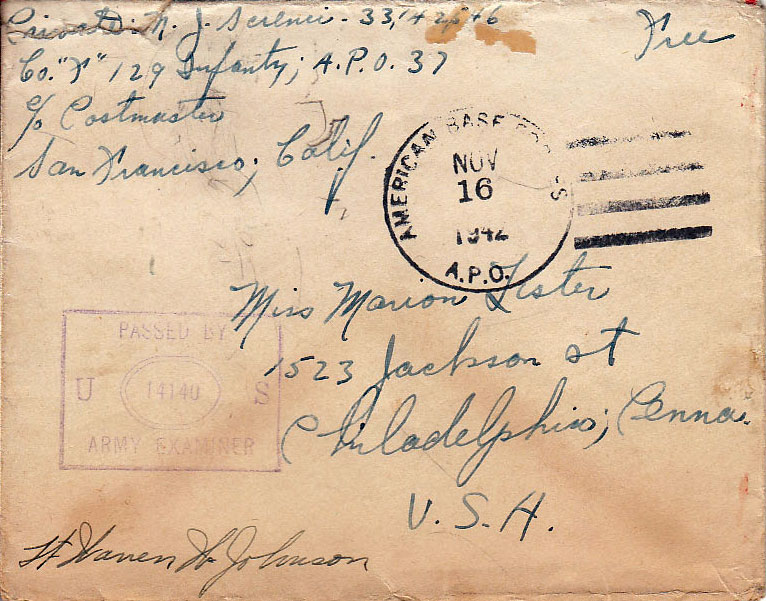 Private: N. J. Screnci - 33,142,646
Free
Co. "F" 129 Infantry; A.P.O. 37
c/o Postmaster
San Francisco, Calif.
AMERICAN BASE
NOV
16
1942
A.P.O.
Miss Marion Lister
1523 Jackson st
Philadelphia, Penna.
U.S.A.
PASSED BY
U 14140 S
ARMY EXAMINER
Lt Warren W Johnson